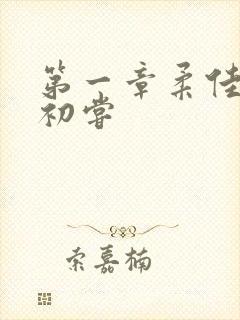 第一章柔佳
初尝
索嘉楠